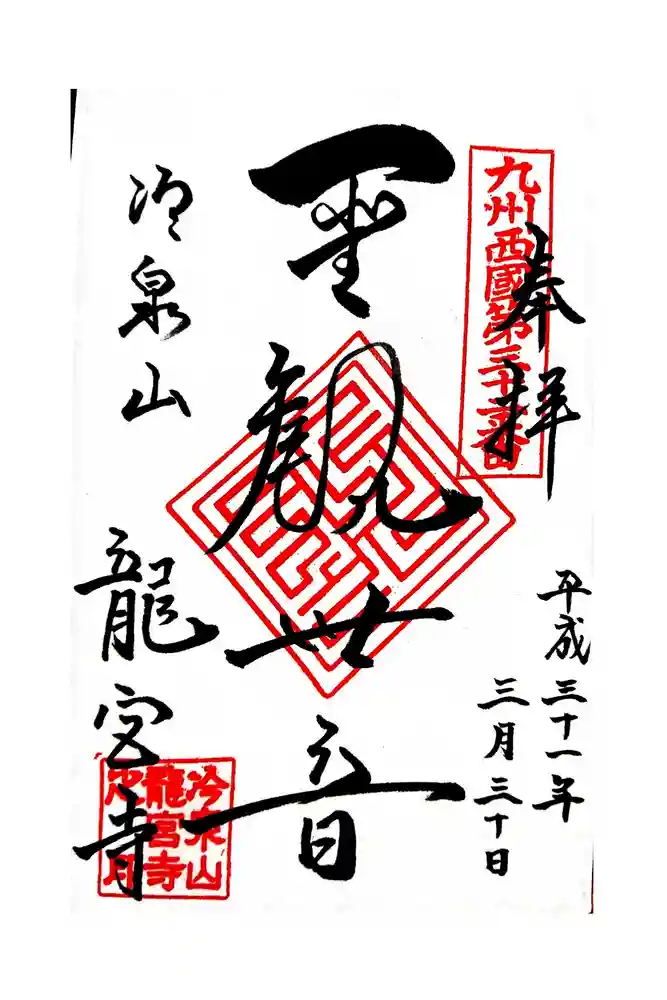 奉拝
九州西國第三十三番
平成三十一年
三月三十日
聖観世音
冷泉山
龍宮寺
冷泉山
龍宮寺